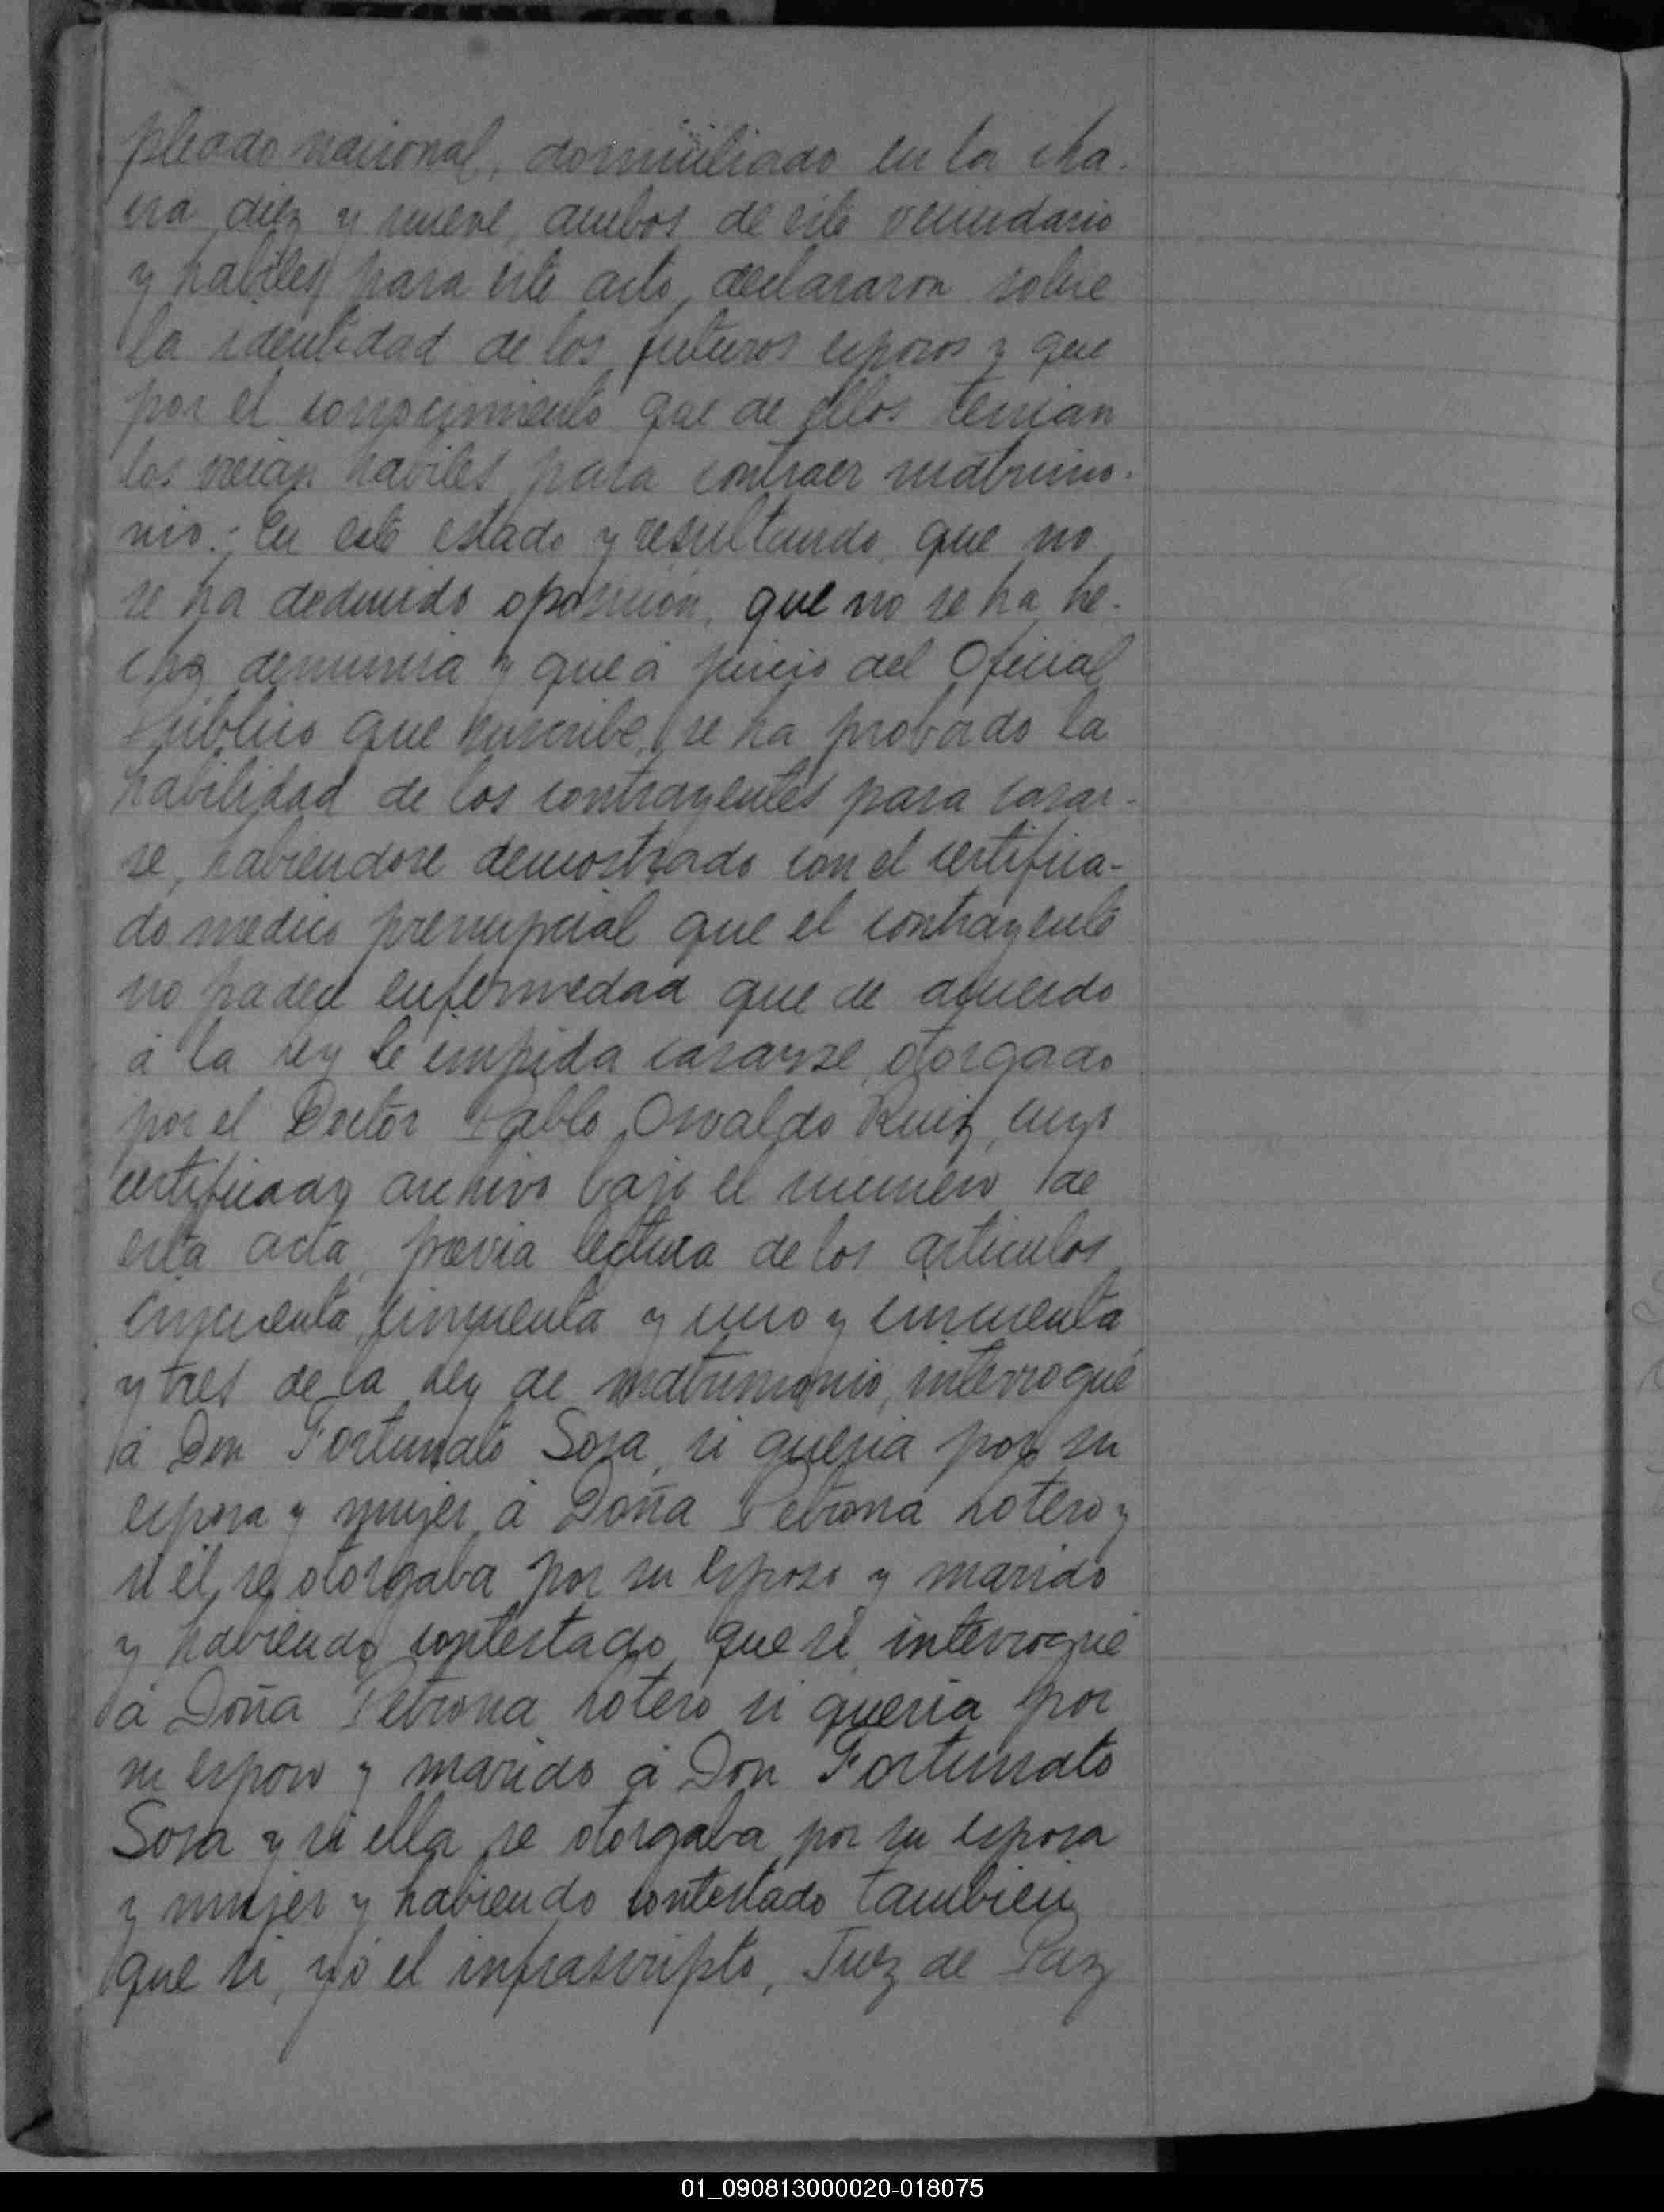 pleado nacional, domiciliado en la cha-
cra diez y nueve, ambos de este vecindario
y habiles para este acto, declararon sobre
la identidad de los futuros esposos y que
por el conocimiento que de ellos tenian
los creian habiles para contraer matrimo-
nio.- En este estado y resultando que no
se ha deducido oposición, que no se ha he-
cho denuncia y que á juicio del Oficial
Público que suscribe, se ha probado la
habilidad de los contrayentes para casar-
se, habiendose demostrado con el certifica-
do medico prenupcial que el contrayente
no padece enfermedad que de acuerdo
á la ley le impida casarse, otorgado
por el Doctor Pablo Osvaldo Ruiz, cuyo
certificado archivo bajo el numero de
esta acta, previa lectura de los articulos
cincuenta, cincuenta y uno y cincuenta
y tres de la ley de matrimonio, interrogué
á Don Fortunato Sosa, si queria por su
esposa y mujer á Doña Petrona Sotero y
si él, se otorgaba por su esposo y marido
y habiendo contestado que si, interrogué
á Doña Petrona Sotero si quería por
su esposo y marido á Don Fortunato
Sosa y si ella se otorgaba por su esposa
y mujer y habiendo contestado tambien
que si, yó el infrascripto, Juez de Paz
01_090813000020-018075